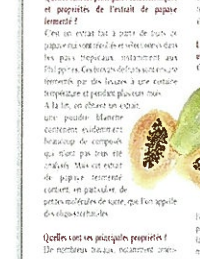 et propriétés de l'extrait de papaye
fermenté ?
C'est un extrait fait à partir de fruits de
papaye qui sont récoltés et sélectionnés dans
les pays tropicaux, notamment aux
Philippines. Ces broyats de fruits sont ensuite
fermentés par des levures à une certaine
température et pendant plusieurs mois.
A la fin, on obtient un extrait,
une poudre blanche
contenant évidemment
beaucoup de composés
qui n'ont pas tous été
analysés. Mais cet extrait
de papaye fermenté
contient, en particulier, de
petites molécules de sucre, que l'on appelle
des oligosaccharides.
Quelles sont ses principales propriétés ?
De nombreux travaux, notamment